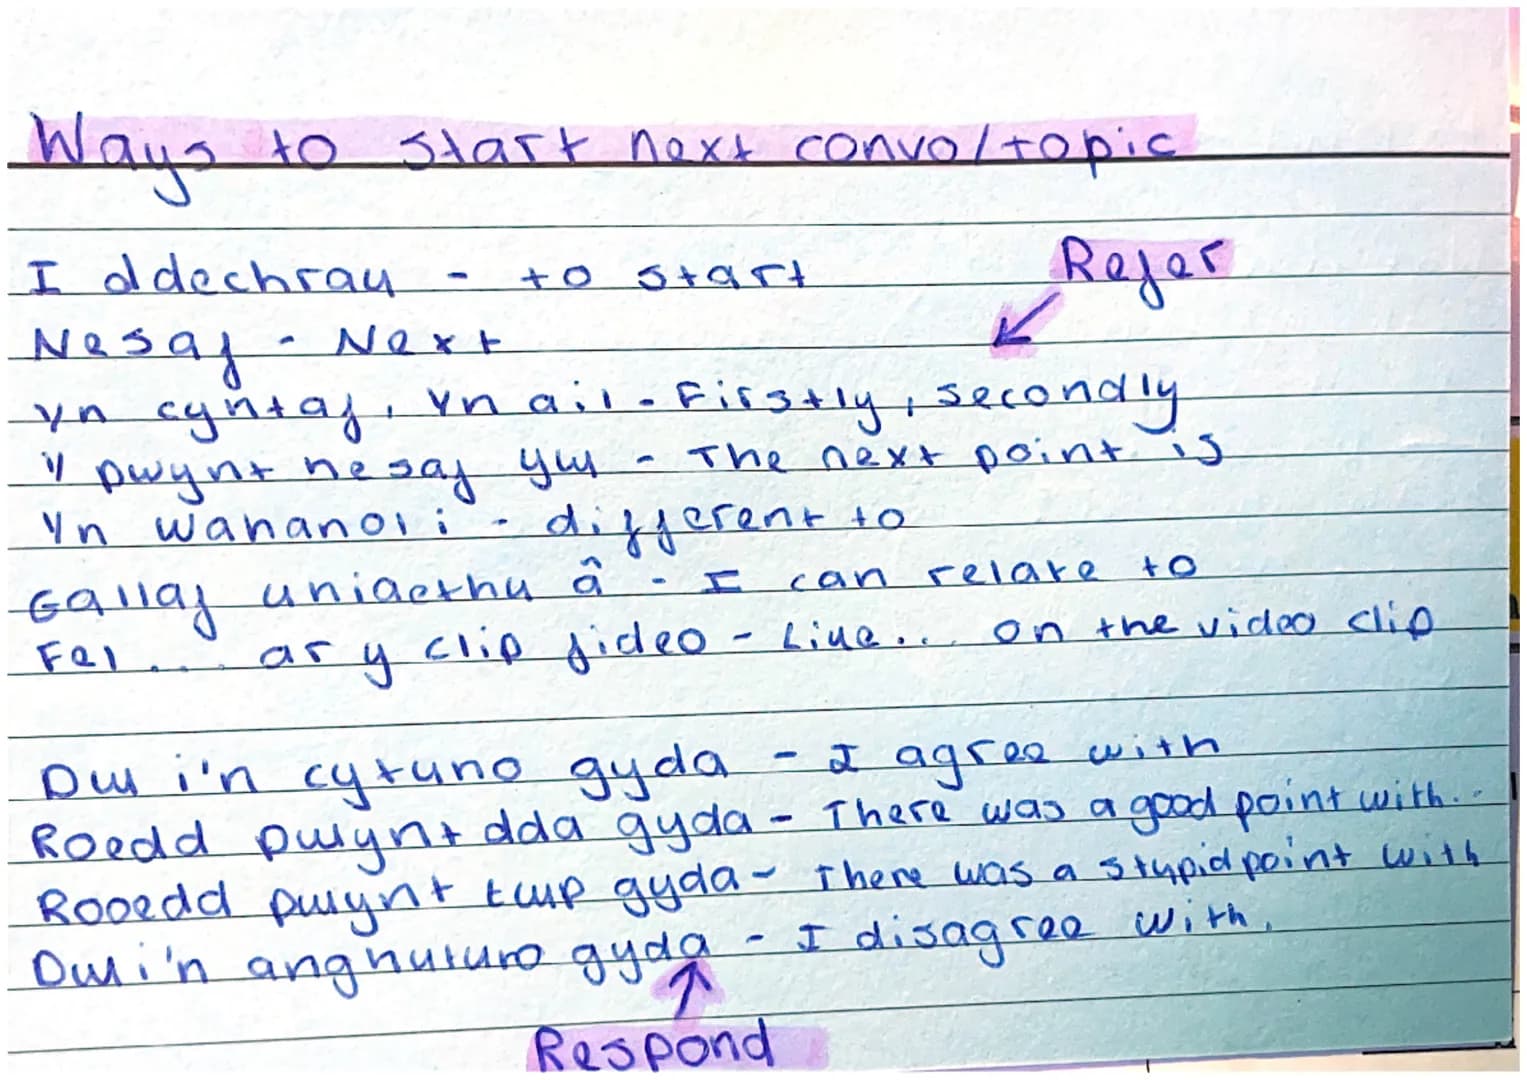 Ways to start next convo/topic
I ddechrau - to start
Refer
Nesaf - Next
Yn cyntaf, Yn ail - Firstly, secondly
Y pwynt nesaf yw - The next point is
Yn wahanol i - different to
Gallaf uniaethu â - I can relate to
Fel .... ar y clip fideo - Like... on the video clip
Dw i'n cytuno gyda - I agree with
Roedd pwynt dda gyda - There was a good point with...
Rooedd pwynt twp gyda - There was a stupid point with
Dwi'n anghuturo gyda - I disagree with.
Respond